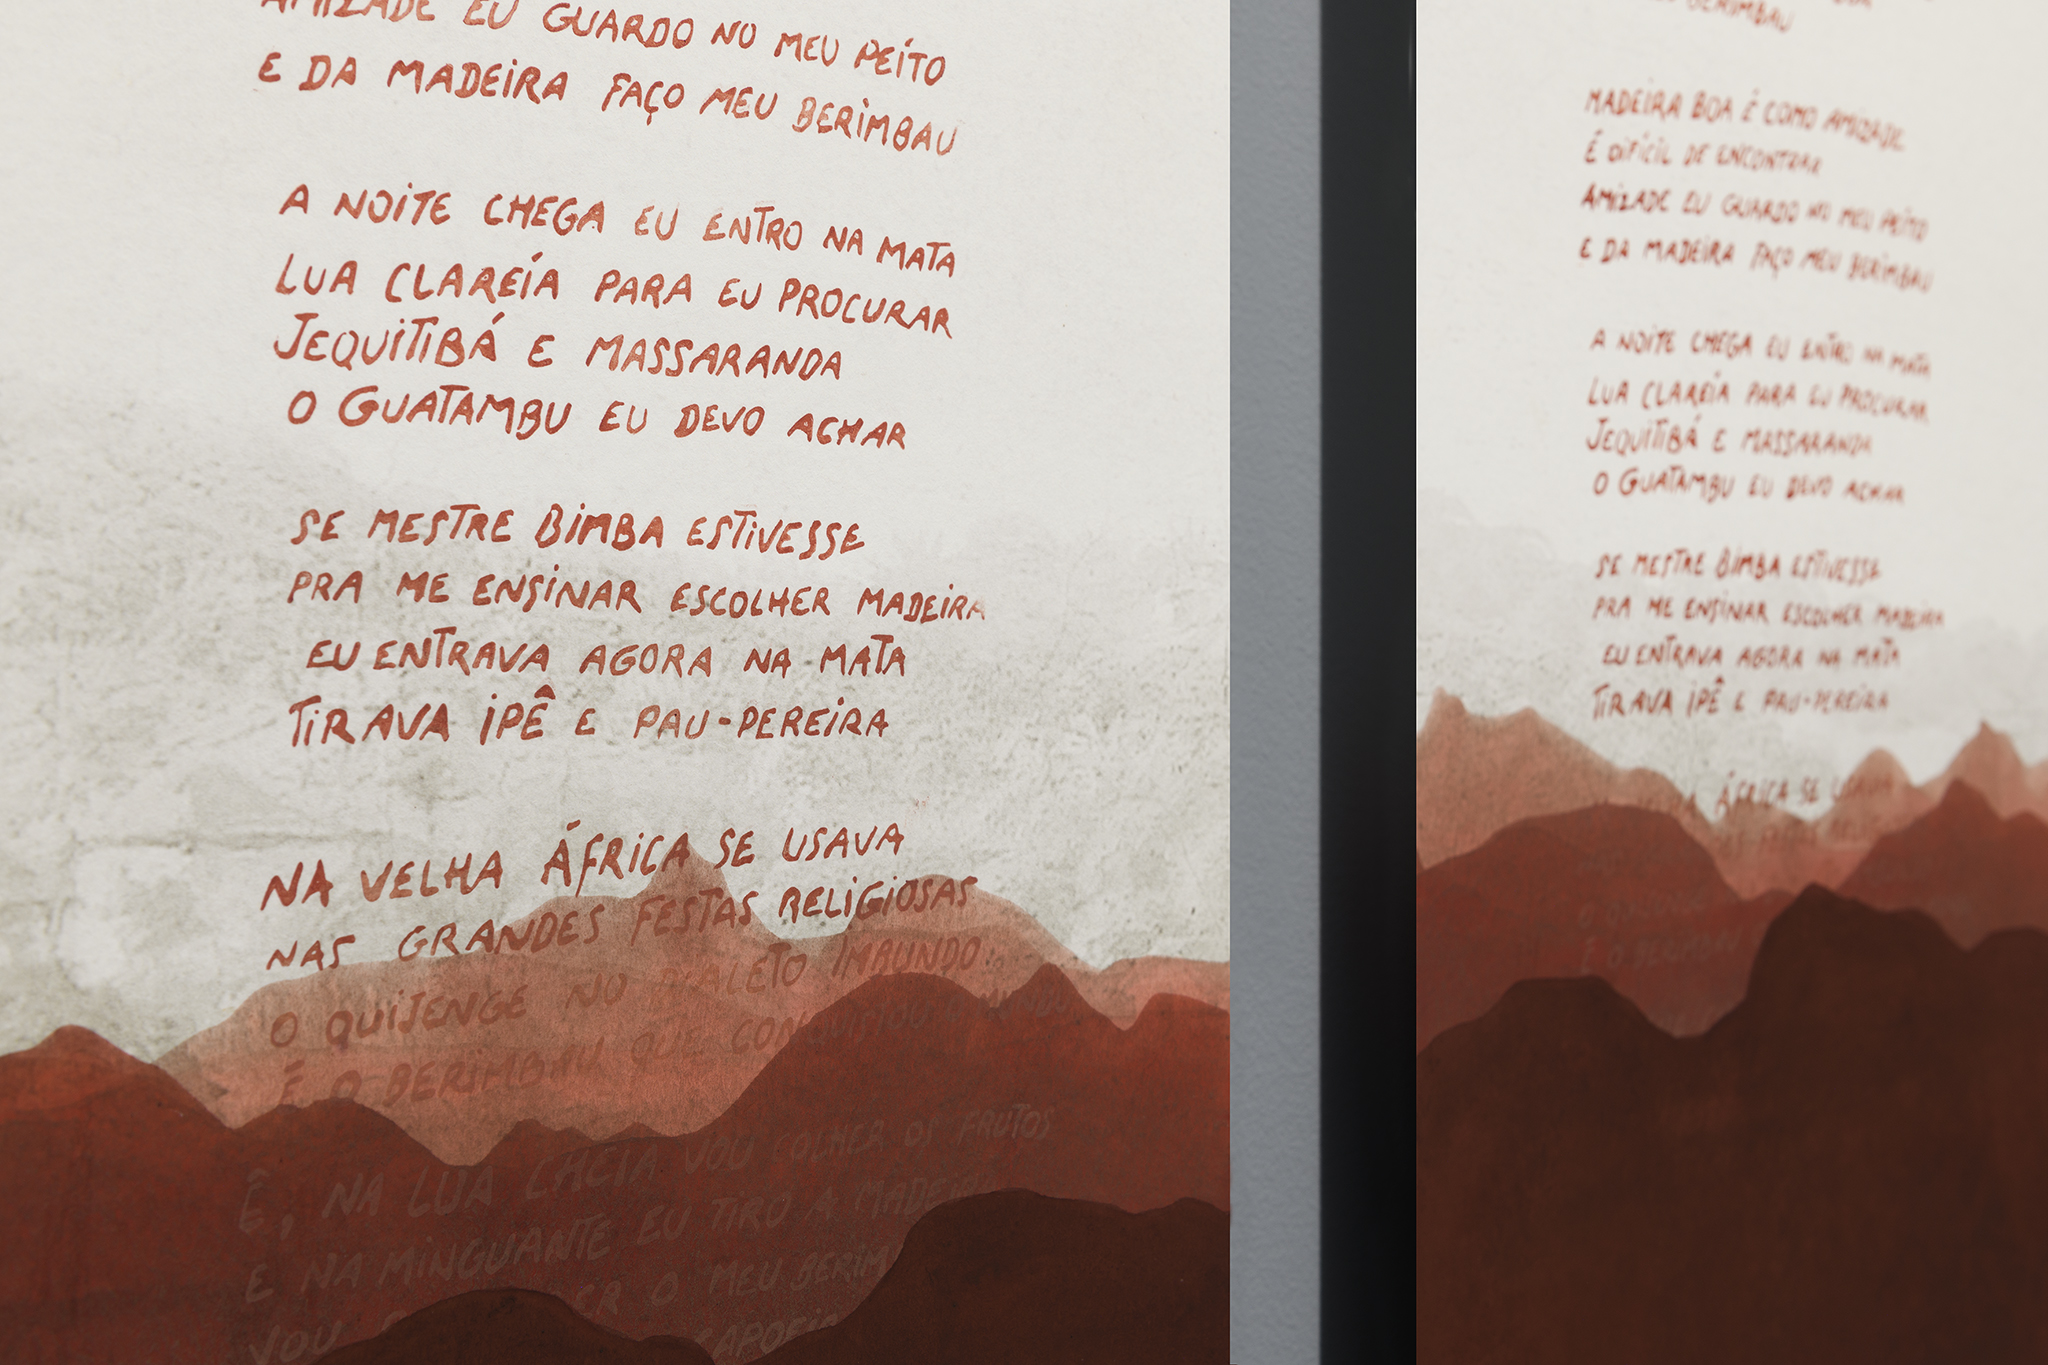 AMIZADE EU GUARDO NO MEU PEÍTO
E DA MADEIRA FAÇO MEU BERIMBAU
A NOITE CHEGA EU ENTRO NA MATA
LUA CLAREÍA PARA EU PROCURAR
JEQUITIBÁ E MASSARANDA
O GUATAMBU EU DEVO ACHAR
SE MESTRE BIMBA ESTIVESSE
PRA ME ENSINAR ESCOLHER MADEIRA
EU ENTRAVA AGORA NA MATA
TIRAVA IPÊ E PAU-PEREIRA
NA VELHA ÁFRICA SE USAVA
NAS GRANDES FESTAS RELIGIOSAS
O QUIJENGE NO DIALETO IMBUNDO
É O BERIMBAU QUE CONQUISTOU O MUNDO
Ê, NA LUA CHEIA VOU COLHER OS FRUTOS
E NA MINGUANTE EU TIRO A MADEIRA
VOU O MEU BERIM
BERIMBAU
MADEIRA BOA É COMO AMIZADE
É DIFÍCIL DE ENCONTRAR
AMIZADE EU GUARDO NO MEU PEÍTO
E DA MADEIRA FAÇO MEU BERIMBAU
A NOITE CHEGA EU ENTRO NA MATA
LUA CLAREÍA PARA EU PROCURAR
JEQUITIBÁ E MASSARANDA
O GUATAMBU EU DEVO ACHAR
SE MESTRE BIMBA ESTIVESSE
PRA ME ENSINAR ESCOLHER MADEIRA
EU ENTRAVA AGORA NA MATA
TIRAVA IPÊ E PAU-PEREIRA
ÁFRICA SE USAVA
É O BERIMBAU